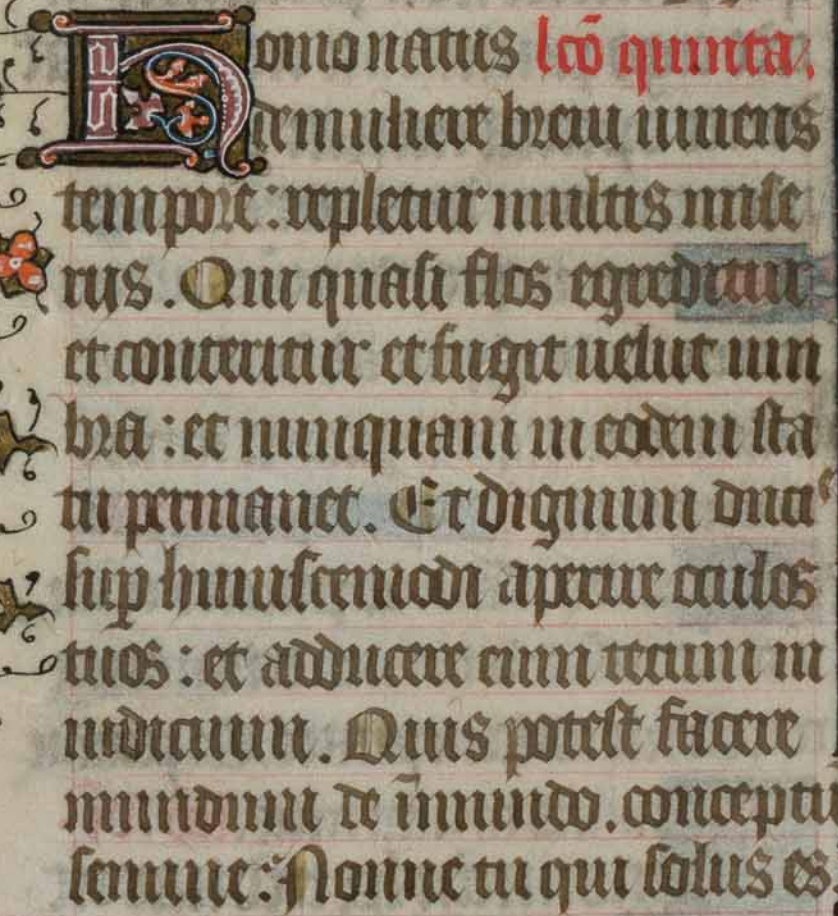 Homo natus lcō quinta.
de muliere breui uiuens
tempore: repletur multis mise
riis. Qui quasi flos egreditur
et conteritur et fugit uelut um
bra: et nunquam in eodem sta
tu permanet. Et dignum
suꝑ huiuscemodi aperire oculos
tuos: et adducere eum tecum in
iudicium. Quis potest facere
mundum de īmundo. conceptū
semine: Nonne tu qui solus es